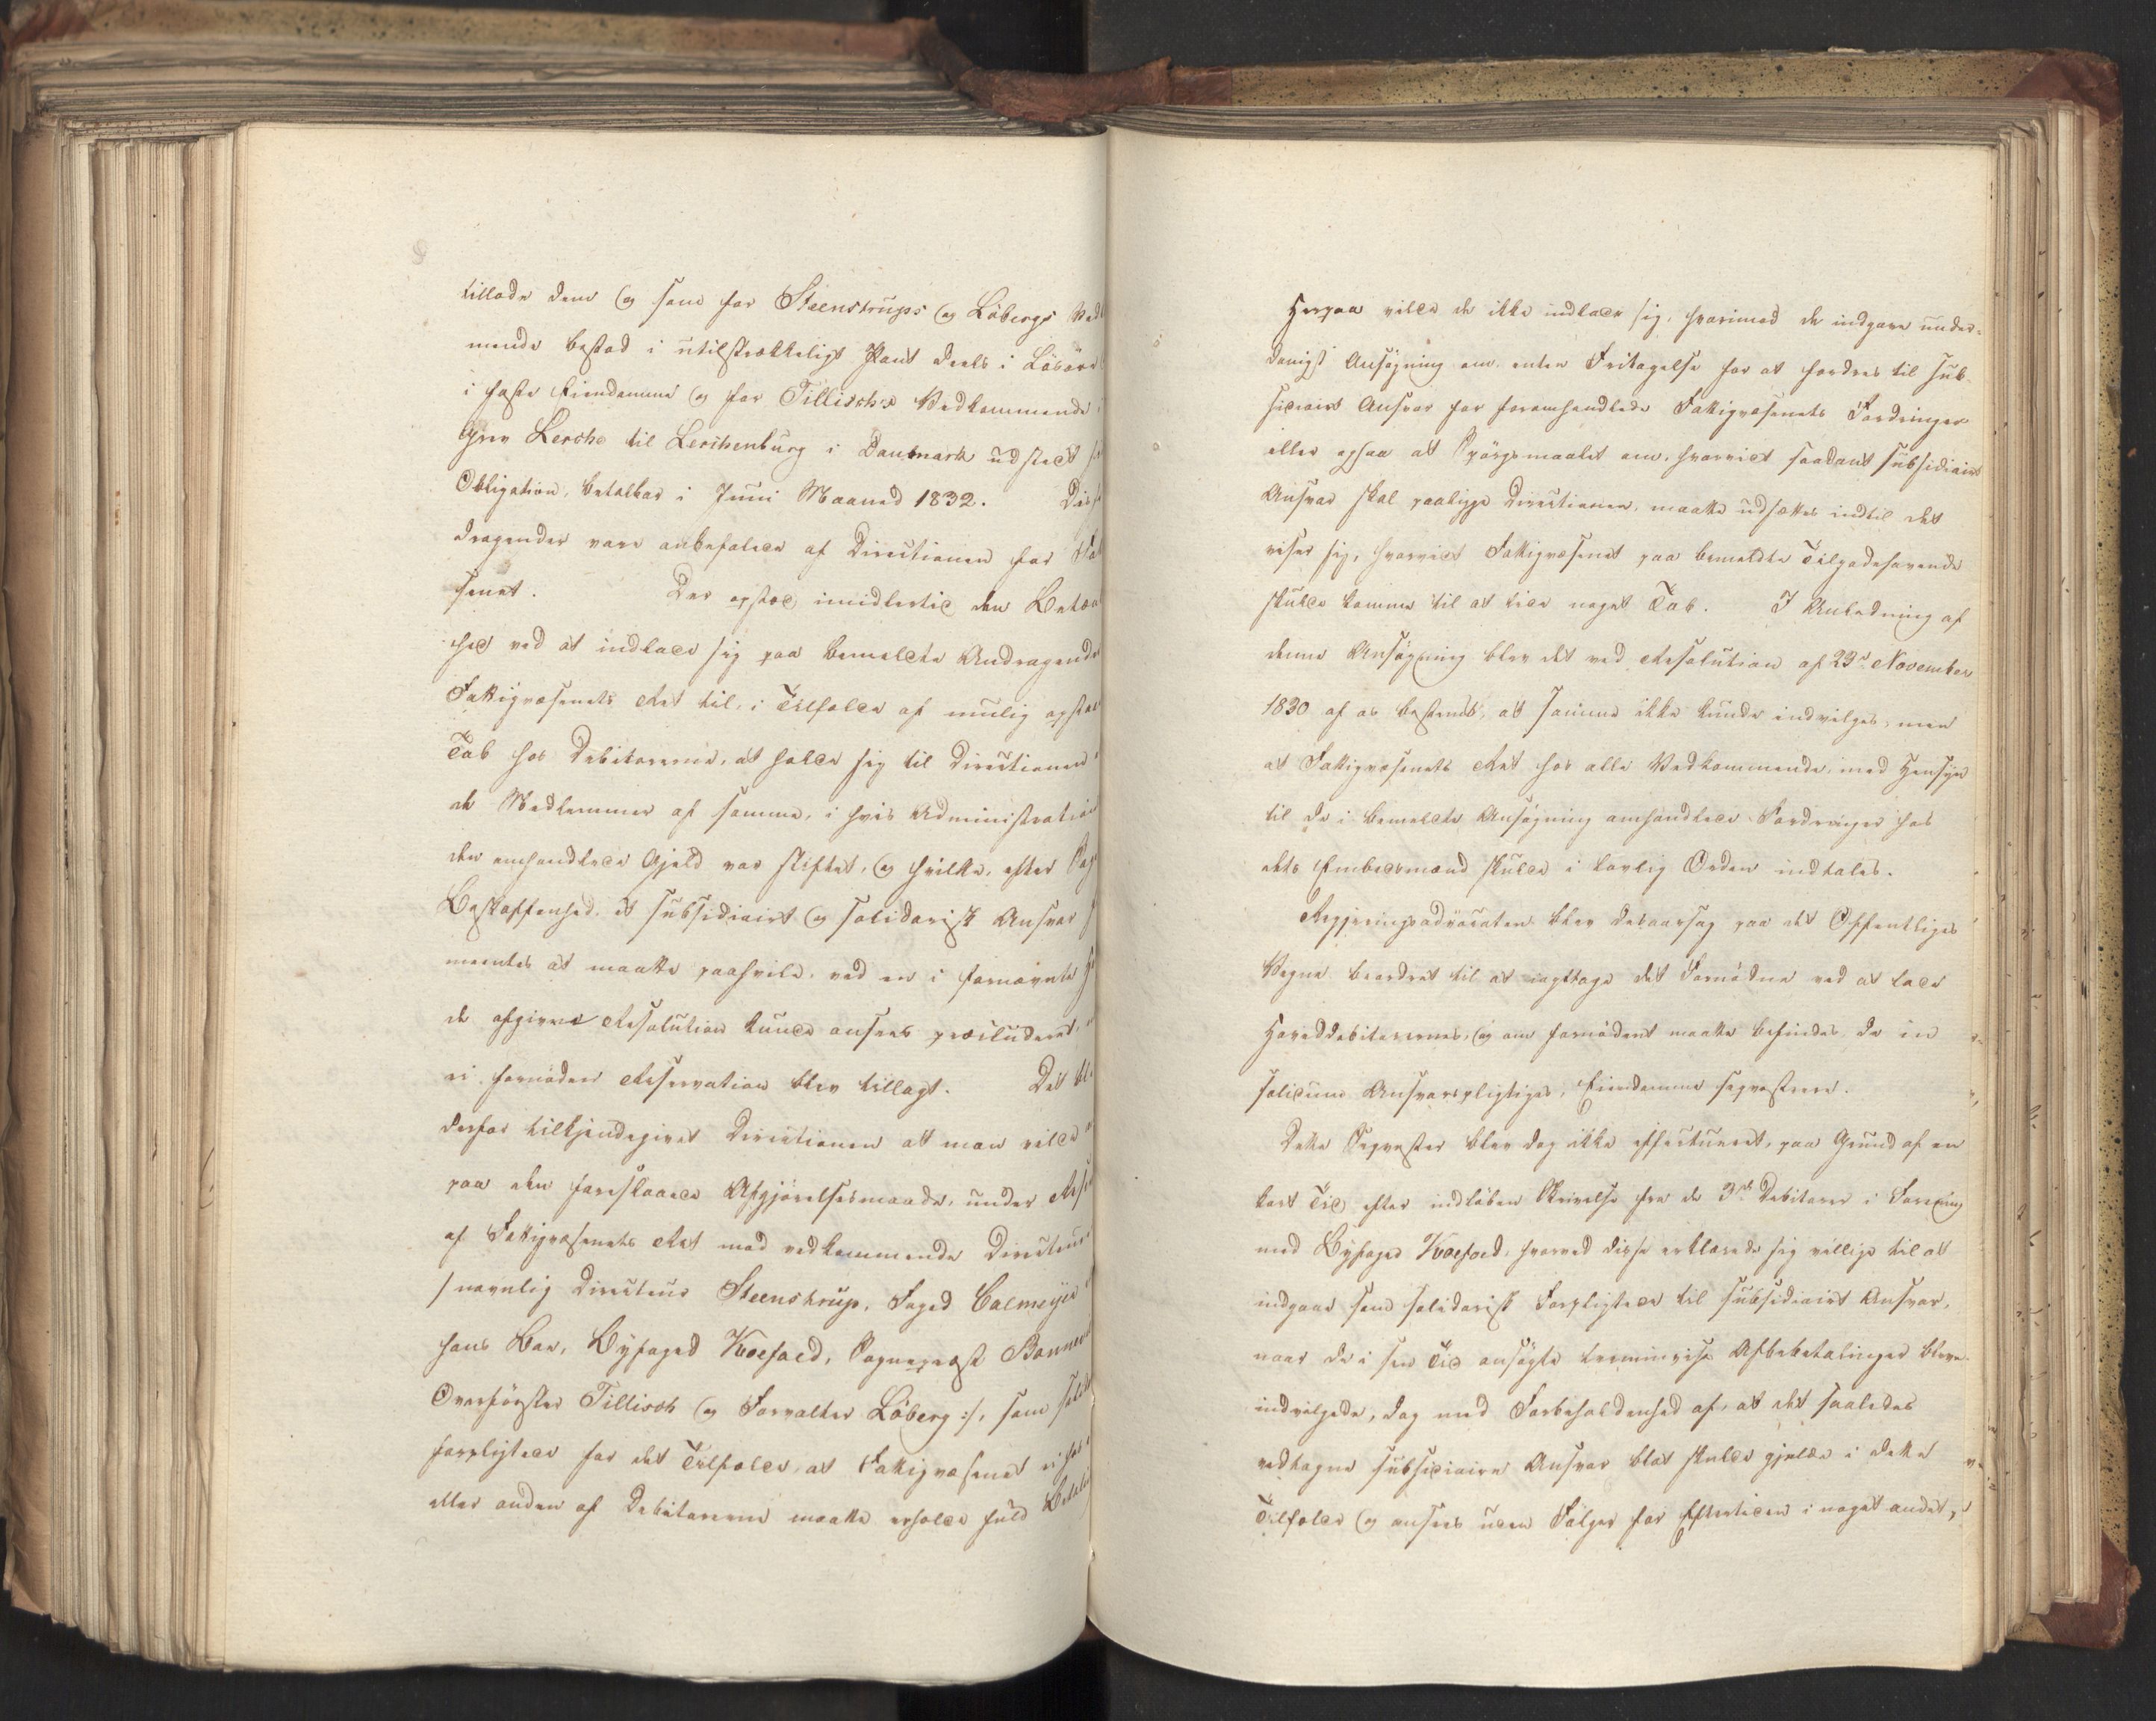 tillode dem og som for Steenstrups og Løbergs Ved
mende bestod i utilstrækkeligt Pant deels i Løsøre
i faste Eiendomme og for Tillisch's Vedkommende i
Grev Lerche til Lerchenburg i Danmark udstedt
Obligation, betalbar i Juni Maaned 1832. Diss
dragender vare anbefalede af Directionen for
senet. Der opstod imidlertid den Betæn
hed ved at indlade sig paa bemeldte Andragende
Fattigvæsenets Ret til, i Tilfælde af mulig opstaa
Tab hos Debitorerne, at holde sig til Directionen
de Medlemmer af samme, i hvis Administration
den omhandlede Gjeld var stiftet, og hvilke, efter Sag
Beskaffenhed, et subsidiairt og solidarisk Ansvar
meentes at maatte paahvile, ved en i fornævnte
de afgiven Resolution kunde ansees præcluderet,
ei fornøden Reservation blev tillagt. Det ble
derfor tilkjendegivet Directionen at man vilde
paa den foreslaaede Afgjørelsesmaade, under Res
af Fattigvæsenets Ret mod vedkommende Directeur
/: navnlig Directeur Steenstrup, Foged Calmeyer
hans Boe, Byfoged Koefoed, Sognepræst Bonnev
Overførster Tillisch og Forvalter Løberg :/, som
forpligtede for det Tilfælde, at Fattigvæsenet ei hos
eller anden af Debitorerne maatte erholde fuld Betali
Herpaa vilde de ikke indlade sig, hvorimod de indgave under-
danigst Ansøgning om enten Fritagelse for at fordres til sub-
sidiairt Ansvar for foromhandlede Fattigvæsenets Fordringer
eller ogsaa at Spørgsmaalet om, hvorvidt saadant subsidiairt
Ansvar skal paaligge Directionen, maatte udsættes indtil det
viser sig, hvorvidt Fattigvæsenet paa bemeldte Tilgodehavende
skulde komme til at lide noget Tab. I Anledning af
denne Ansøgning blev det ved Resolution af 23d November
1830 af os bestemt, at samme ikke kunde indvilges, men
at Fattigvæsenets Ret hos alle Vedkommende, med Hensyn
til de i bemeldte Ansøgning omhandlede Fordringer hos
dets Embedsmænd skulde i lovlig Orden indtales.
Regjeringsadvocaten blev desaarsag paa det Offentliges
Vegne beordret til at iagttage det Fornødne ved at lade
Hoveddebitorernes, og om fornødent maatte befindes, de in
solidum Ansvarspligtiges, Eiendomme seqvestrere.
Dette Seqvester blev dog ikke effectueret, paa Grund af en
kort Tid efter indløben Skrivelse fra de 3de Debitorer i Forening
med Byfoged Koefoed, hvorved disse erklærede sig villige til at
indgaae som solidarisk Forpligtede til subsidiairt Ansvar,
naar de i sin Tid ansøgte terminvise Afbetalinger bleve
indvilgede, dog med Forbeholdenhed af, at det saaledes
vedtagne subsidiaire Ansvar blot skulde gjelde i dette
Tilfælde og ansees uden Følger for Eftertiden i noget andet,